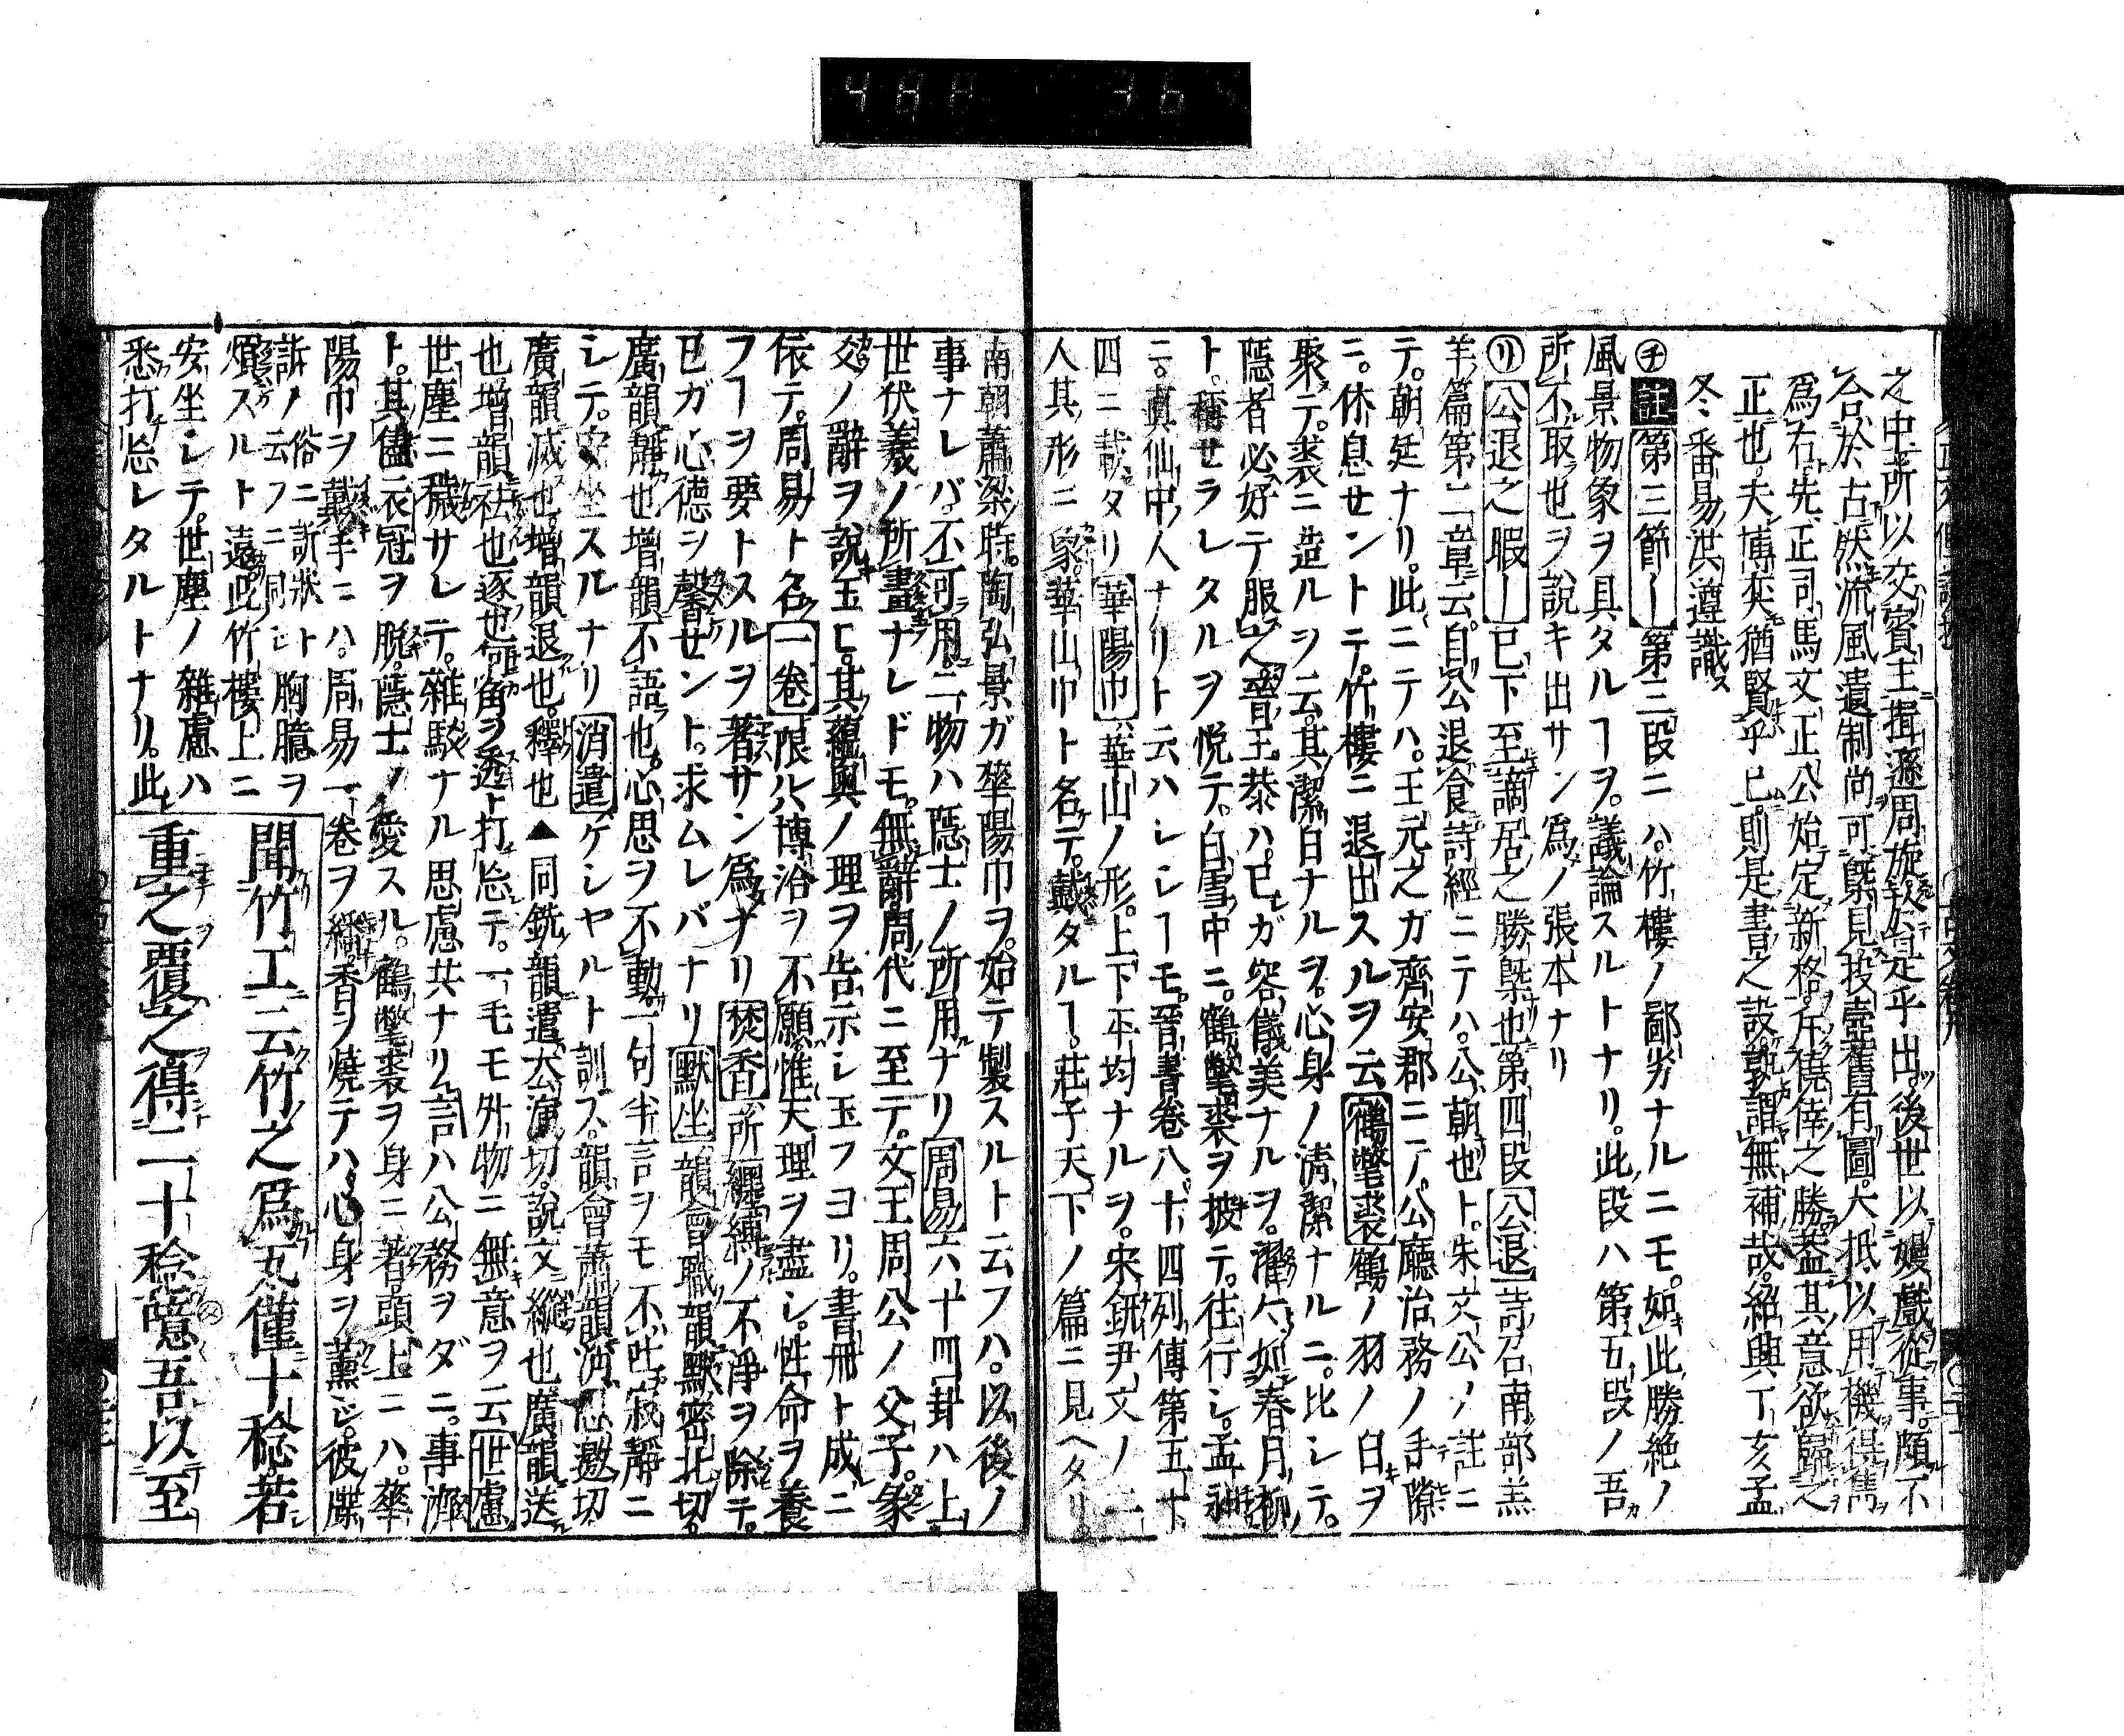 之中所以交賓主揖遜周旋㪅皆是乎出後世以嫚戲從事頗不
合於古然流風遺制尚可槩見投壺舊有圖大抵以用機得雋
爲右先正司馬文正公始定新格斥僥倖之勝葢其意欲歸之
正也夫博奕猶賢乎已則是書之設孰謂無補哉紹興丁亥孟
冬番昜洪遵識
㋠註第三節第三段ニハ竹樓ノ鄙劣ナルニモ如此勝絶ノ
風景物象ヲ具タルヿヲ議論スルトナリ此段ハ第五段ノ吾
所不取也ヲ說キ出サン爲ノ張本ナリ
㋷公退之暇已下至謫居之勝槩也第四段公退詩召南部羔
羊篇第二章云自公退食詩經ニテハ公朝也ト朱文公ノ註ニ
テ朝廷ナリ此ニテハ王元之ガ齊安郡ニノ公廳治務ノ手隙
ニ休息セントニテ竹樓ニ退出スルヲ云鶴氅裘鶴ノ羽ノ白ヲ
聚テ裘ニ造ルヲ云其潔白ナルヲ心身ノ清潔ナルニ比シテ
隱者必好テ服之晉王恭ハ已ガ容儀美ナルヲ濯濯如春月柳
ト稱セラレタルヲ悦テ白雪中ニ鶴氅裘ヲ披テ往行シ孟昶
ニ真仙中人ナリト云ハレシヿモ晉書卷八十四列傳第五十
四ニ載タリ華陽巾華山ノ形上下平均ナルヲ宋鈃尹文ノ二
人其形ニ象華山巾ト名テ戴タルヿ莊子天下ノ篇ニ見ヘタリ
南朝蕭梁時陶弘景ガ華陽巾ヲ始テ製スルト云フハ以後ノ
事ナレバ不可用二物ハ隱士ノ所用ナリ周易六十四卦ハ上
世伏羲ノ所畫ナレドモ無辭周代ニ至テ文王周公ノ父子象
爻ノ辭ヲ說玉ヒ其蘊奧ノ理ヲ告示シ玉フヨリ書冊ト成ニ
依テ周易ト名一卷限ルハ博洽ヲ不願惟天理ヲ盡シ性命ヲ養
フヿヲ要トスルヲ著サン爲ナリ焚香所纒縛ノ不淨ヲ除テ
已ガ心德ヲ馨セント求ムレバナリ默坐韻會職韻默密北切
廣韻靜也增韻不語也心思ヲ不動一句半言ヲモ不吐寂靜ニ
シテ安坐スルナリ消遣ケシヤルト訓ス韻會蕭韻消思邀切
廣韻滅也增韻退也釋也▲同銑韻遣去演切說文縱也廣韻送
也增韻祛也逐也窗ヲ透ト打忘テ一毛モ外物ニ無意ヲ云世慮
世塵ニ穢サレテ雜駁ナル思慮共ナリ言ハ公務ヲダニ事濟
ト其儘衣冠ヲ脫隱士ノ愛スル鶴氅裘ヲ身ニ著頭上ニハ華
陽巾ヲ戴手ニハ周易一卷ヲ繙香ヲ燒テハ心身ヲ薰ジ彼牒
訴ノ俗ニ訴狀ト云フニ同シ胸臆ヲ
煩スルト遠此竹樓上ニ
安坐シテ世塵ノ雜慮ハ
悉打忘レタルトナリ此
聞竹工云竹之爲瓦僅十稔若
重之覆之得二十稔噫吾以至